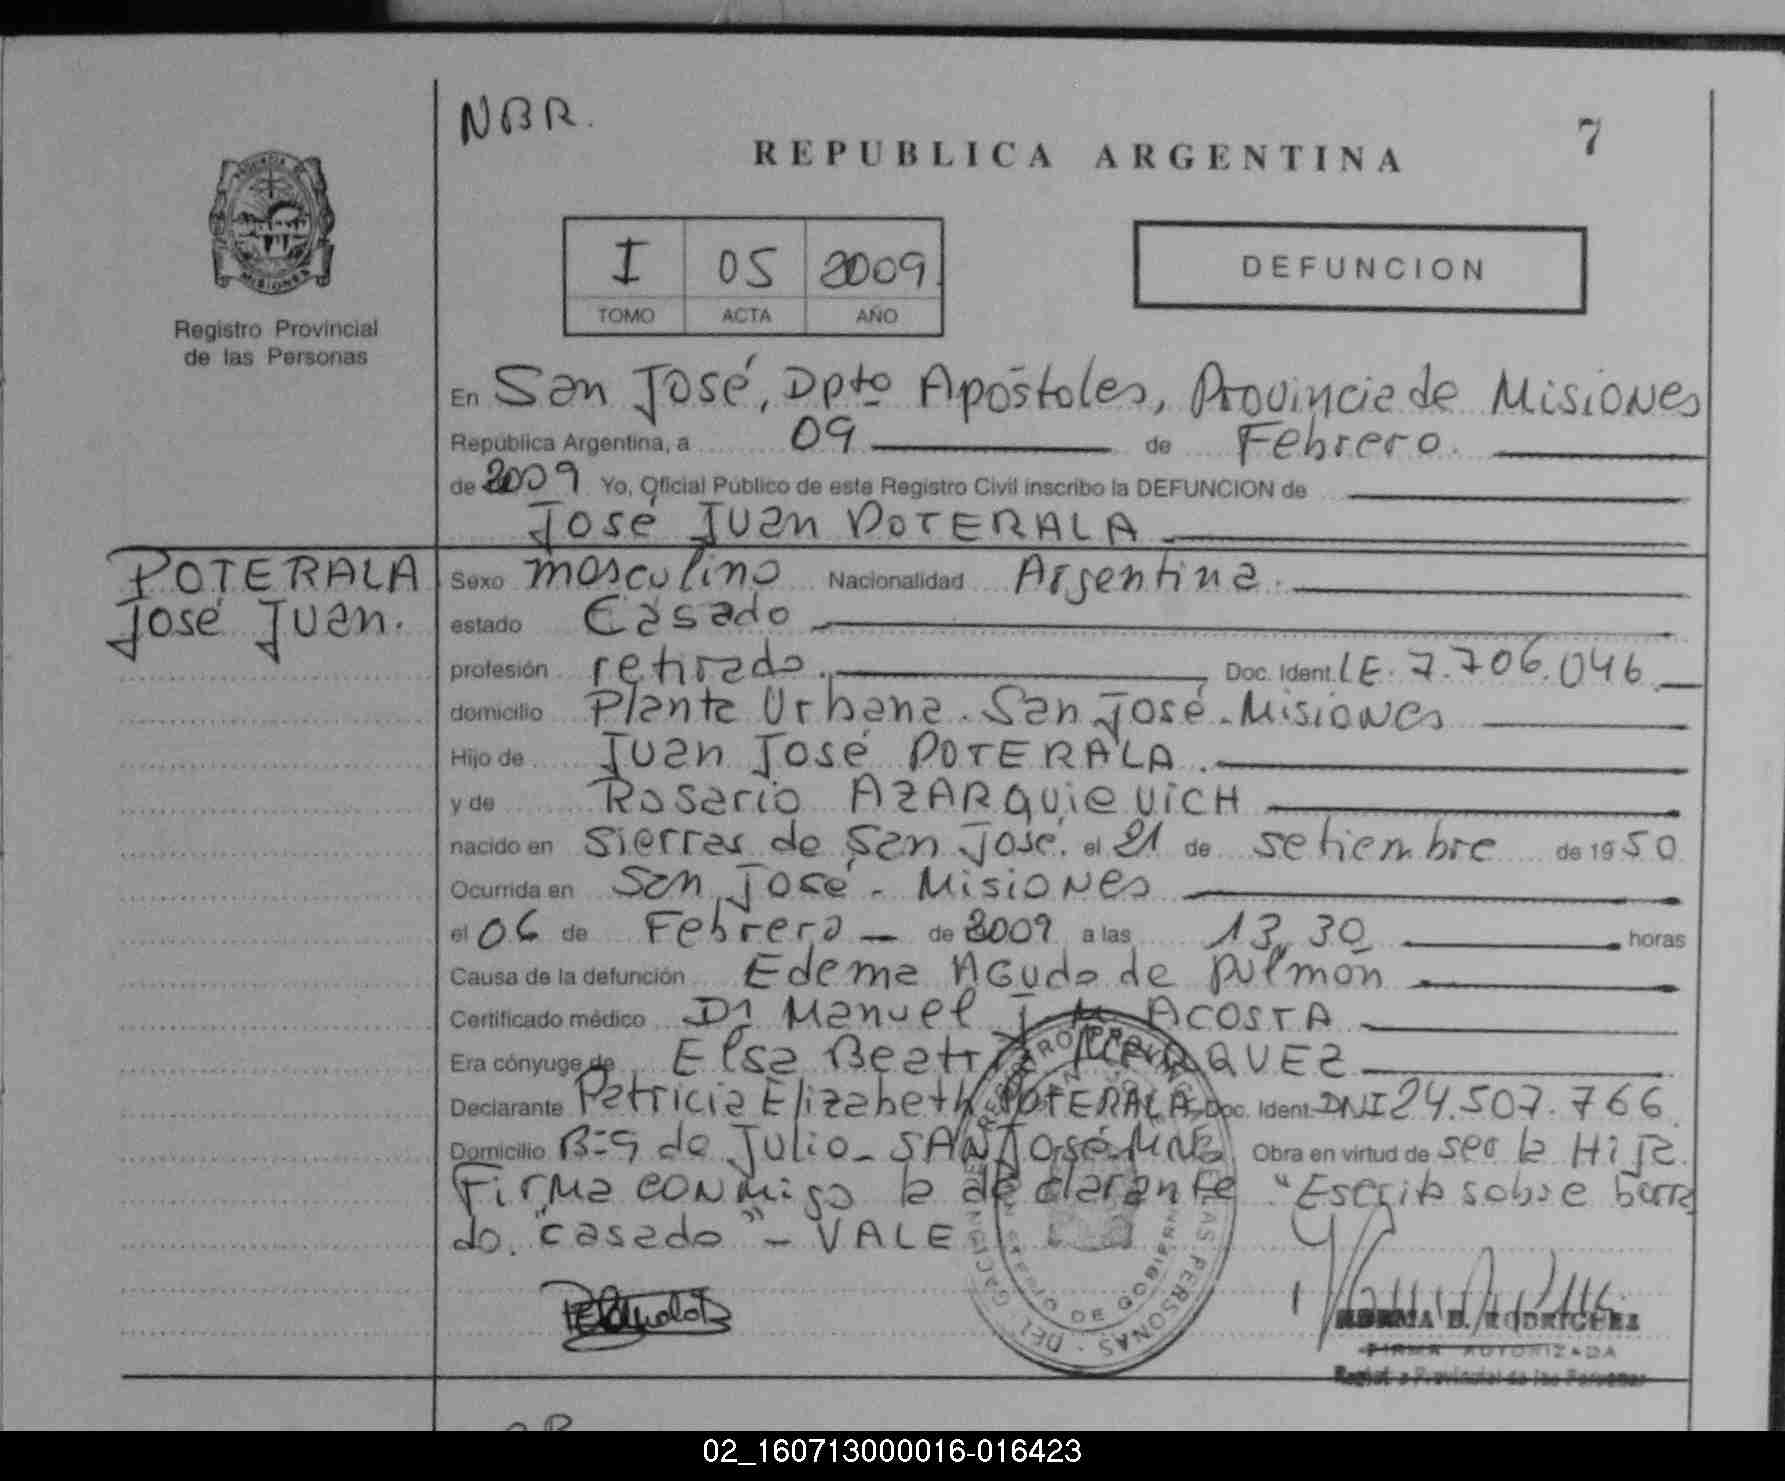 NBR.
REPUBLICA ARGENTINA
7
PROVINCIA DE
MISIONES
Registro Provincial
de las Personas
I 05 2009
TOMO ACTA AÑO
DEFUNCION
En San José, Dpto Apóstoles, Provincia de Misiones
República Argentina, a 09 de Febrero.
de 2009 Yo, Oficial Público de este Registro Civil inscribo la DEFUNCION de
José Juan POTERALA
POTERALA
José Juan.
Sexo masculino Nacionalidad Argentina.
estado Casado
profesión retirado. Doc. Ident. LE. 7.706.046
domicilio Planta Urbana. San José. Misiones
Hijo de Juan José POTERALA.
y de Rosario AZARQUIEVICH
nacido en Sierras de San José. el 21 de setiembre de 1950
Ocurrida en San José - Misiones
el 06 de Febrero - de 2009 a las 13,30 horas
Causa de la defunción Edema Agudo de pulmón
Certificado médico Dr Manuel J. M. ACOSTA
Era cónyuge de Elsa Beatriz
Declarante Patricia Elizabeth POTERALA Doc. Ident. DNI 24.507.766
Domicilio Bº 9 de Julio - SAN José. Mnes Obra en virtud de ser la Hija.
Firma conmigo la declarante "Escrito sobre borra
do. "casado" - VALE
REGISTRO PROVINCIAL DE LAS PERSONAS
NORMA B. RODRIGUEZ
FIRMA AUTORIZADA
Registro Provincial de las Personas
02_160713000016-016423